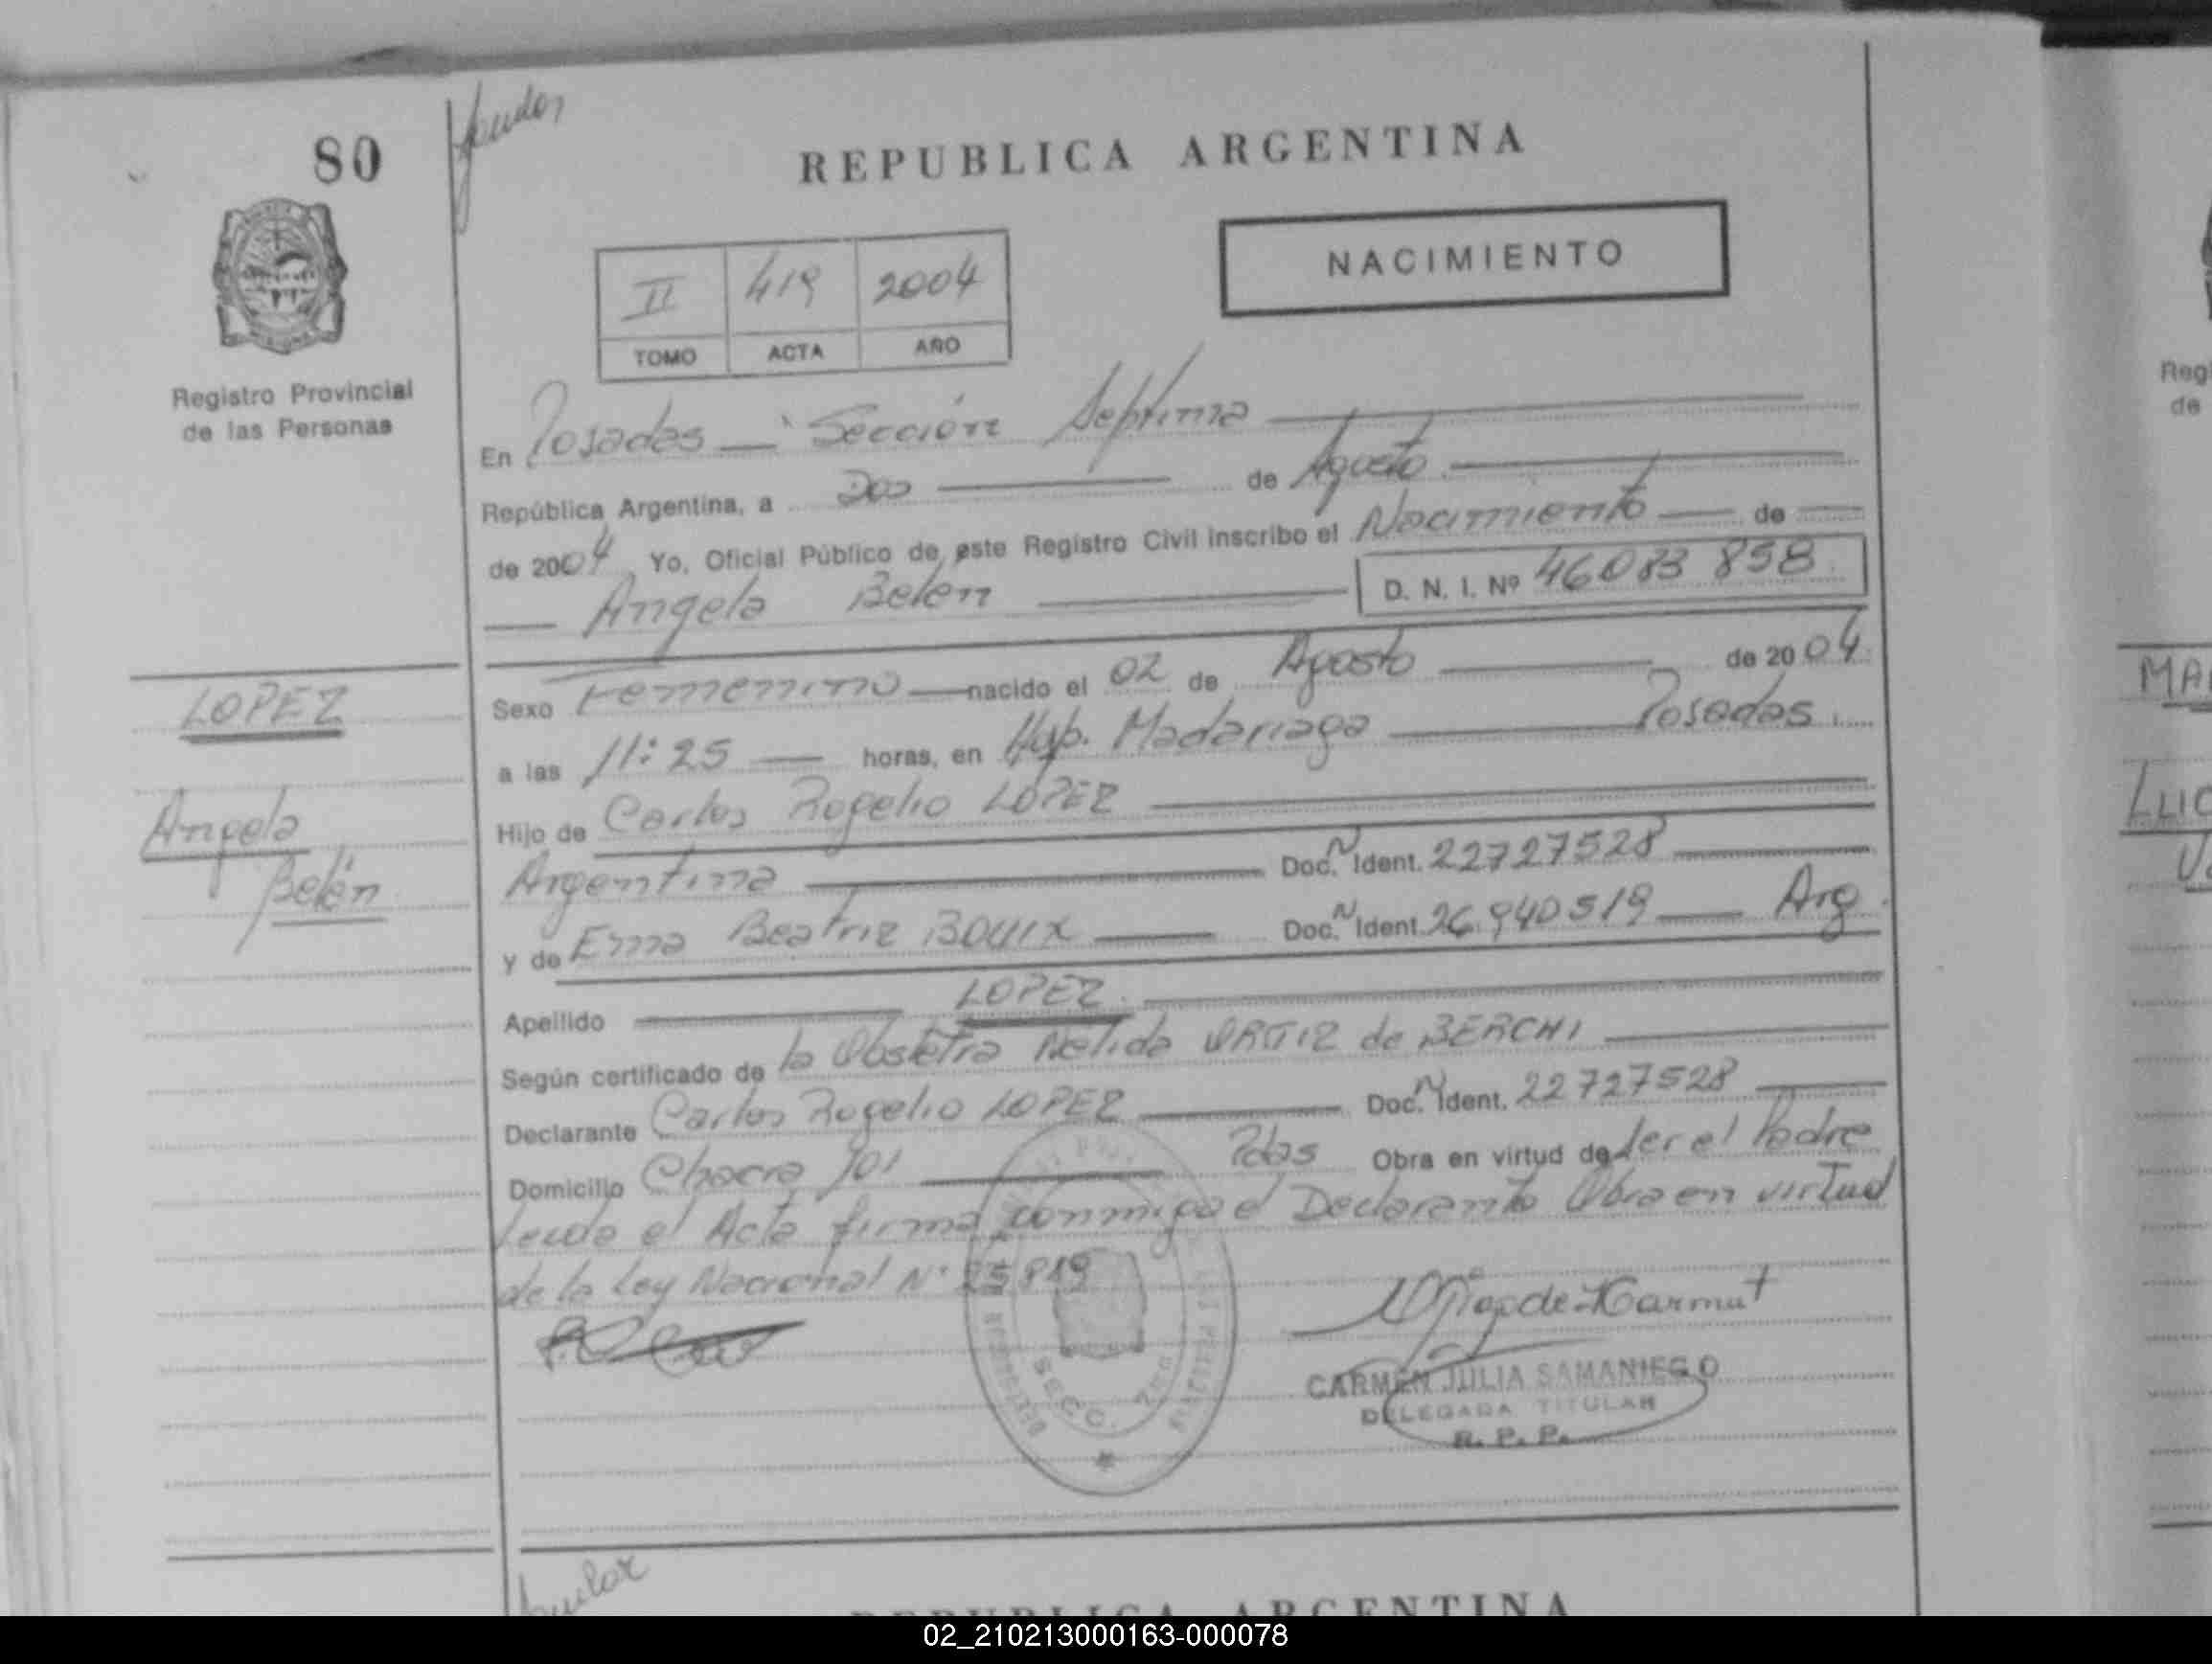 80
REPUBLICA ARGENTINA
NACIMIENTO
II 419 2004
TOMO ACTA AÑO
Registro Provincial
de las Personas
En Posadas — Sección Septima
República Argentina, a Dos de Agosto
de 2004 Yo, Oficial Público de este Registro Civil inscribo el Nacimiento de
Angela Belen D. N. I. Nº 46083 858
Sexo Femenino nacido el 02 de Agosto de 2004
LOPEZ
a las 11:25 horas, en Hop. Madariaga Posadas
Hijo de Carlos Rogelio LOPEZ
Angela
Belén
Argentina Doc. N Ident. 22727528
y de Ema Beatriz BOUIX Doc. N Ident. 26.940519 Arg.
Apellido LOPEZ
Según certificado de la Obstetra Nelida ORTIZ de BERCHI
Declarante Carlos Rogelio LOPEZ Doc. N Ident. 22727528
Domicilio Chacra 101 Pdas Obra en virtud de ser el Padre
leida el Acta firma conmigo el Declarante Obra en virtud
de la Ley Nacional Nº 25819
SECC. 7ma
CARMEN JULIA SAMANIEGO
DELEGADA TITULAR
R. P. P.
REPUBLICA ARGENTINA
MA
LUC
Regi
de
02_210213000163-000078